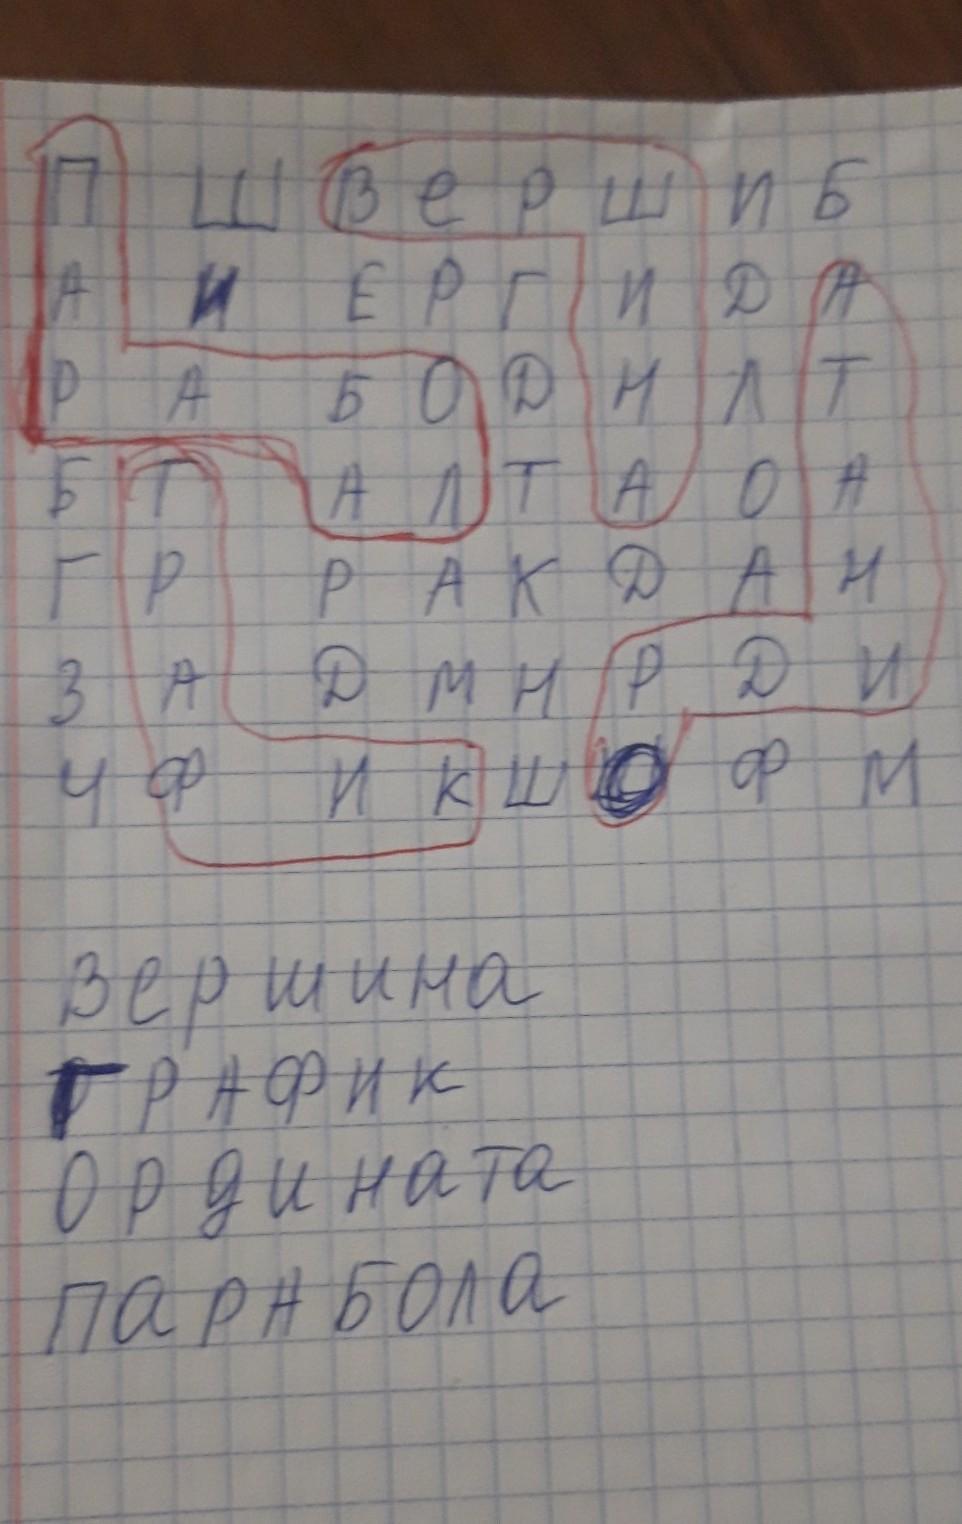 П Ш В е Р Ш И Б
А И Е Р Г И Д А
Р А Б О Д Н Л Т
Б Т А Л Т А О А
Г Р Р А К Д А Н
З А Д М Н Р Д И
Ч Ф И К Ш О Ф М
Вершина
ГРАФИК
Ордината
ПАРАБОЛА